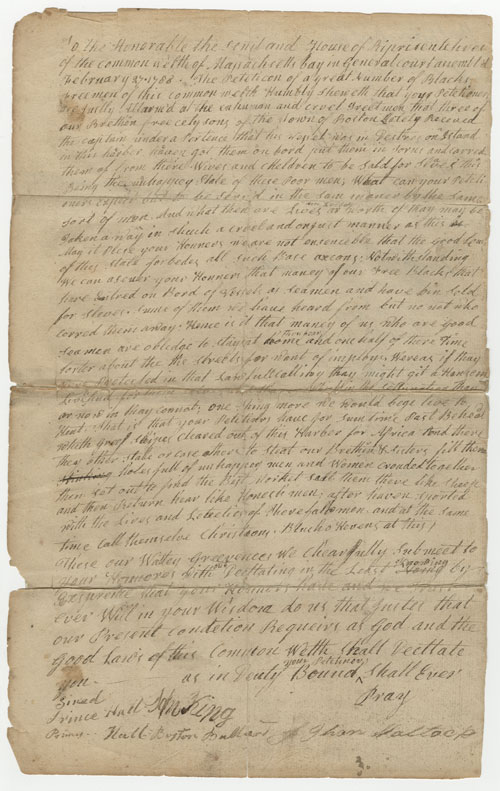 To the Honorable the Senet and House of Riprisentetives
of the common welth of Massachsetts bay in General court assembled
February 27 1788 -. The Petition of a great Number of Blacks
freemen of this common welth Humbly sheweth that your Petetioners
are justly Allarmed at the enhuman and cruel Treetment that three of
our Brethren free citysons of the Town of Boston lately Receved
the captain under a Pertence that his vessel was in destres on a Island
in this harbor haveg got them on bord put them in Iorns and carred
them of from there Wives and children to be Sold for Slaves this
Being the unhappey State of these Poor men What can your Petiti
oners expect but to be treted in the same maner by the Same
Sort of men And what then are Lives worth if thay may be
taken a way in shuch a cruel and onjust manner as this
May it Plese your Honners we are not encencable that the good Laws
of this State forbedes all Such Bace axcons: Notwithstanding
we can asuer your Honners that maney of our free Blacks that
have Entred on Bord of Vessels as Seamen and have bin Sold
for Slaves Sume of them we haus heard from but no not who
carred them away: Hence is it that maney of us who are good
Seamen are obledge to Stay at home thru fear and one half of there Time
lorter about the the Streets for want of imploy: Wereas if they
Protected in that Lawfull calling thay might git a Hansom
Livelihud for
or now in thay cannot; one thing more we would bege leve to
Hint: that is that your Petetioners have for sumtime Past Beheald
whith greef Ships cleared out of this Harbor for Africa and there
they other Stale or case others to Steal our Brethren & Sisters fill there
holes full of unhappey men and Women crouded together
then Set out to find the Best Market sell them there like Sheep
and then Return hear like Honest men; after haven Sported
with the Lives and Leberties of there fallo men and at the Same
time call themselve Christions: Blush o Hevens at this;
These our Wattey Greevences we Chearfully Submeet to
your Honnores With out Decttating in the Least knowing by
that your Honners have and we
ever Will in your Wisdom do us that Justes that
our Present condetion Requiers as God and the
good Laws of this Common Welth Shall Decttate
you - as in Deuty Bound your Petitioners Shall Ever
Pray
Sined
Prince Hall
Hall Boston